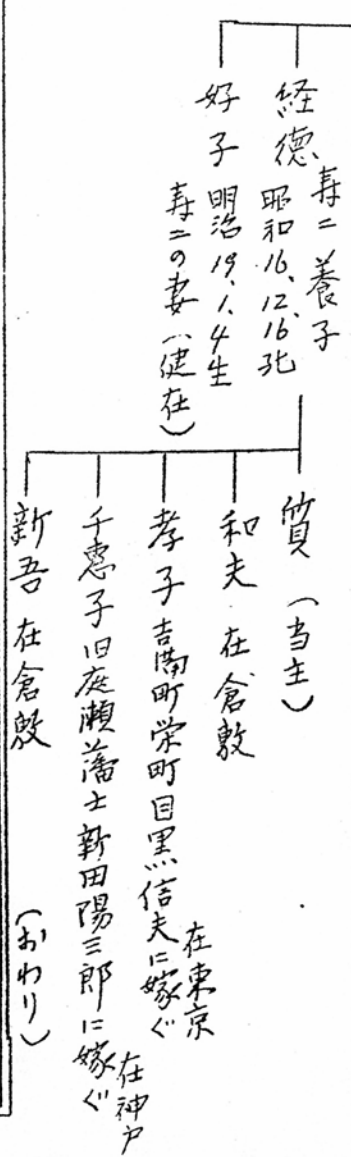 経徳 寿二養子
昭和16、12、16死
好子 明治19、1、4生
寿二の妻(健在)
質(当主)
和夫 在倉敷
孝子 吉備町栄町目黒信夫に嫁ぐ 在東京
千恵子 旧庭瀬藩士新田陽三郎に嫁ぐ 在神戸
新吾 在倉敷
(おわり)